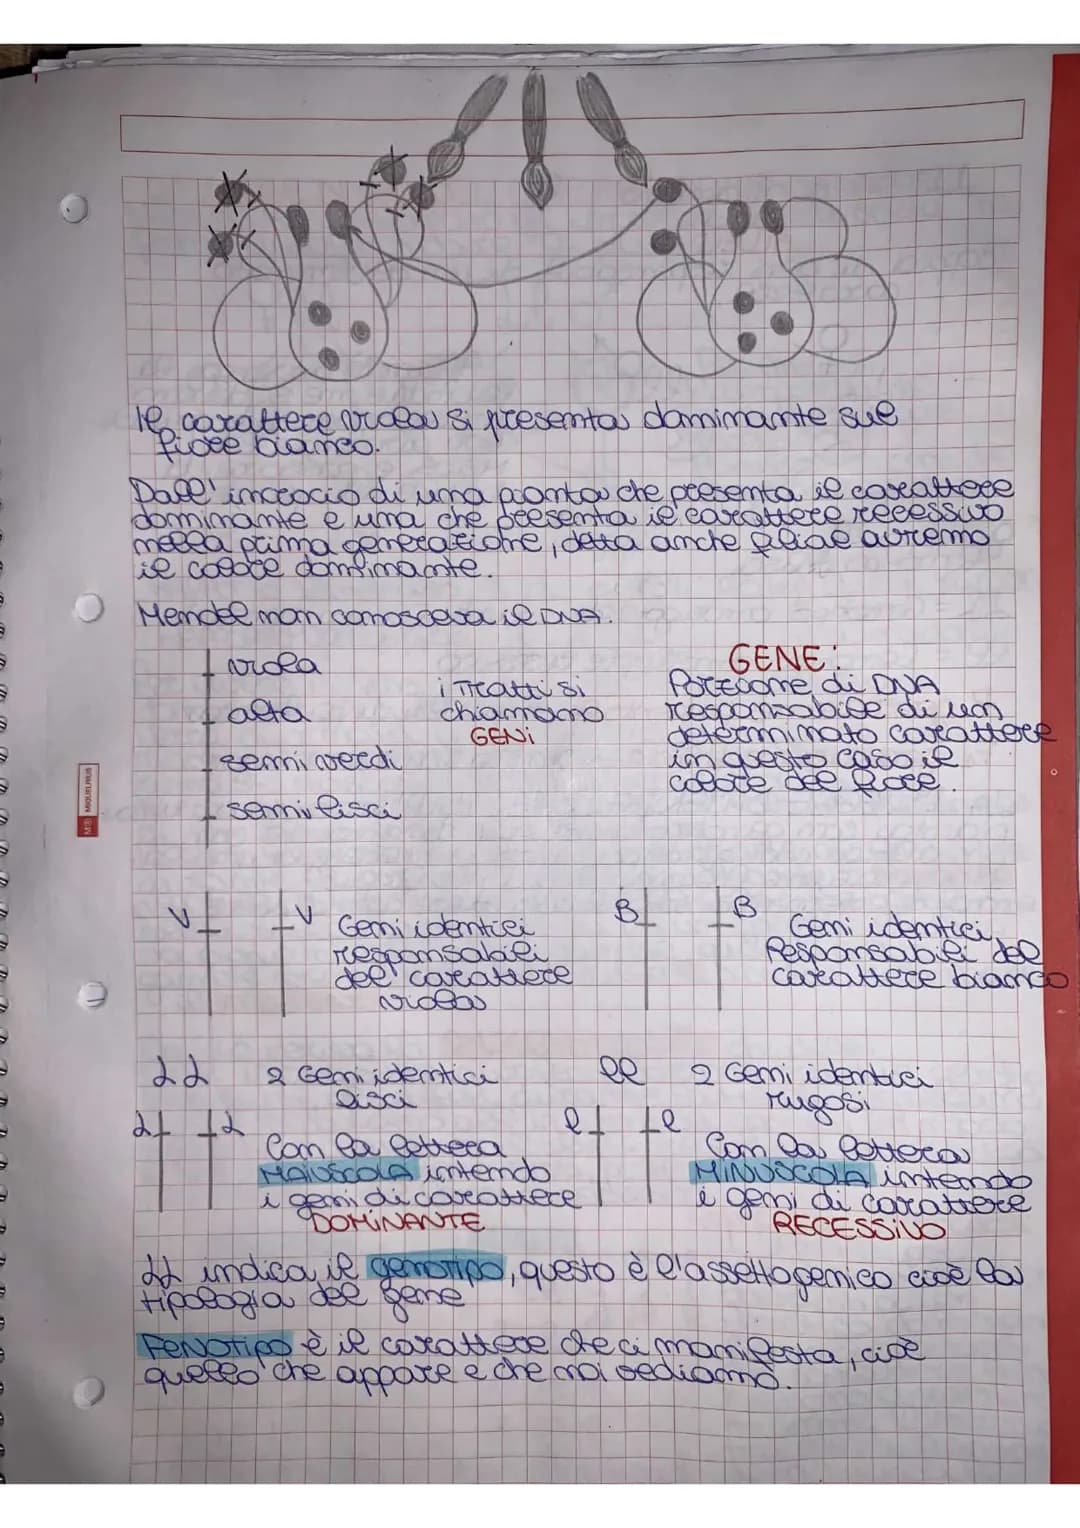 Il carattere viola si presenta dominante sul
fiore bianco.
Dall'incrocio di una pianta che presenta il carattere
dominante e una che presenta il carattere recessivo
nella prima generazione, detta anche filiae avremo
il colore dominante.
Mendel non conosceva il DNA.
viola
alta
semi verdi
semi lisci
i Tratti si
chiamano
GENI
GENE:
Porzione di DNA
responsabile di un
determinato carattere
in questo caso il
colore del fiore.
V V
Geni identici
responsabili
del carattere
viola
B B
Geni identici
Responsabili del
carattere bianco
LL 2 Geni identici
lisci
L L
Con la lettera
MAIUSCOLA intendo
i geni di carattere
DOMINANTE
ll 2 Geni identici
rugosi
l l
Con la lettera
MINUSCOLA intendo
i geni di carattere
RECESSIVO
LL indica il genotipo, questo è l'assetto genico cioè la
tipologia del gene
FENOTIPO è il carattere che ci manifesta, cioè
quello che appare e che noi vediamo.
MIQUELRIUS